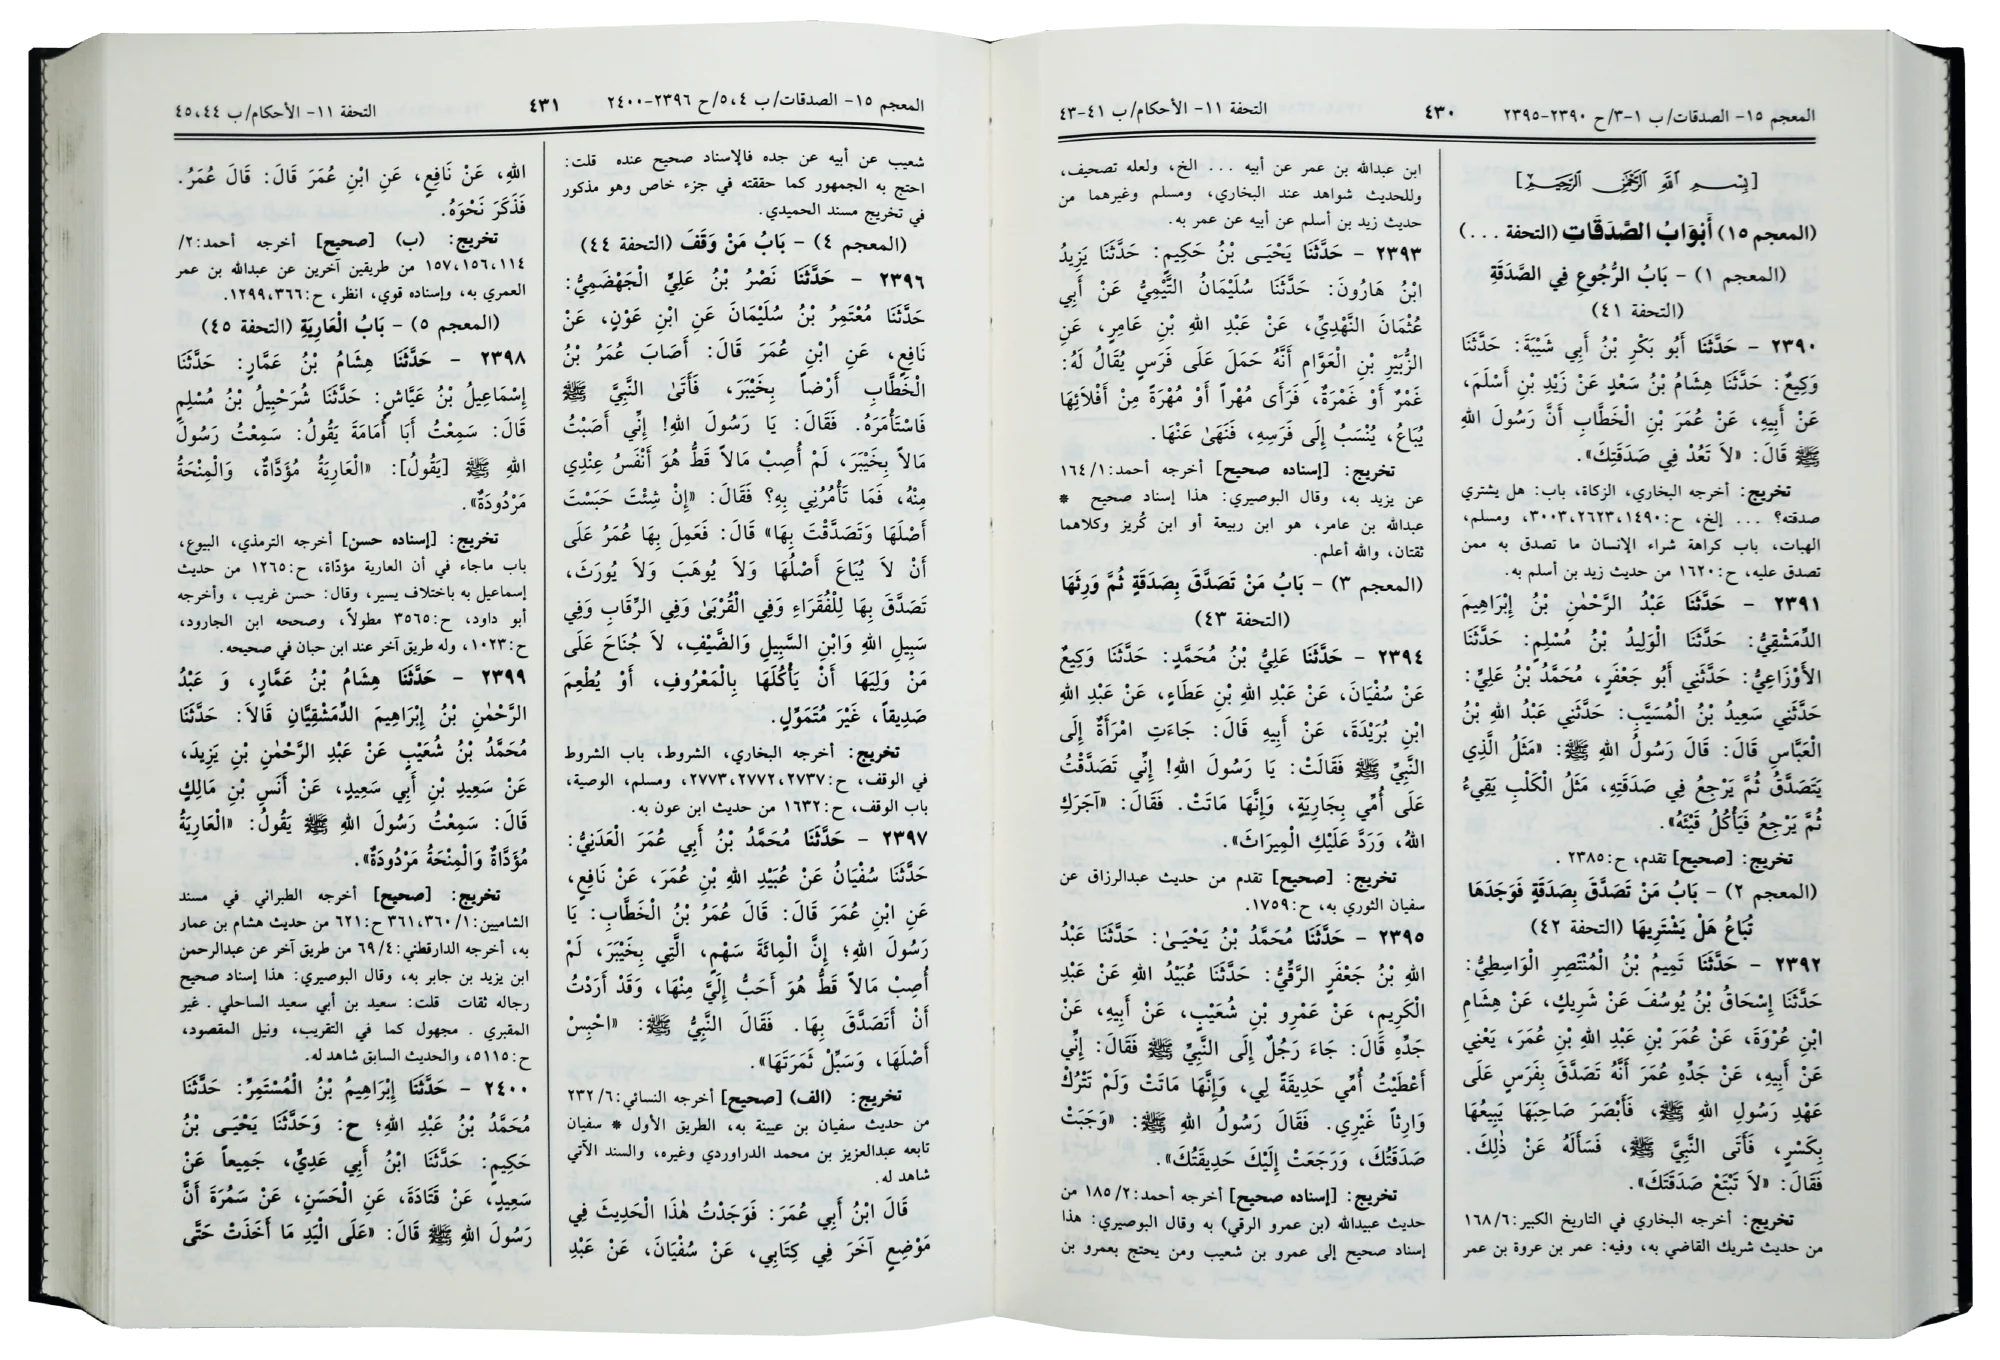 المعجم ١٥- الصدقات/ ب ١-٣/ح ٢٣٩٠-٢٣٩٥ ٤٣٠ التحفة ١١- الأحكام/ ب ٤١-٤٣
[بِسْمِ اللهِ الرَّحْمٰنِ الرَّحِيْمِ]
(المعجم ١٥) أَبْوَابُ الصَّدَقَاتِ (التحفة . . .)
(المعجم ١) - بَابُ الرُّجُوعِ فِي الصَّدَقَةِ
(التحفة ٤١)
٢٣٩٠ - حَدَّثَنَا أَبُو بَكْرِ بْنُ أَبِي شَيْبَةَ: حَدَّثَنَا
وَكِيعٌ: حَدَّثَنَا هِشَامُ بْنُ سَعْدٍ عَنْ زَيْدِ بْنِ أَسْلَمَ،
عَنْ أَبِيهِ، عَنْ عُمَرَ بْنِ الْخَطَّابِ أَنَّ رَسُولَ اللهِ
ﷺ قَالَ: «لاَ تَعُدْ فِي صَدَقَتِكَ».
تخريج: أخرجه البخاري، الزكاة، باب: هل يشتري
صدقته؟ . . . إلخ، ح:١٤٩٠،٢٦٢٣،٣٠٠٣، ومسلم،
الهبات، باب كراهة شراء الإنسان ما تصدق به ممن
تصدق عليه، ح:١٦٢٠ من حديث زيد بن أسلم به.
٢٣٩١ - حَدَّثَنَا عَبْدُ الرَّحْمٰنِ بْنُ إِبْرَاهِيمَ
الدِّمَشْقِيُّ: حَدَّثَنَا الْوَلِيدُ بْنُ مُسْلِمٍ: حَدَّثَنَا
الأَوْزَاعِيُّ: حَدَّثَنِي أَبُو جَعْفَرٍ، مُحَمَّدُ بْنُ عَلِيٍّ:
حَدَّثَنِي سَعِيدُ بْنُ الْمُسَيَّبِ: حَدَّثَنِي عَبْدُ اللهِ بْنُ
الْعَبَّاسِ قَالَ: قَالَ رَسُولُ اللهِ ﷺ: «مَثَلُ الَّذِي
يَتَصَدَّقُ ثُمَّ يَرْجِعُ فِي صَدَقَتِهِ، مَثَلُ الْكَلْبِ يَقِيءُ
ثُمَّ يَرْجِعُ فَيَأْكُلُ قَيْئَهُ».
تخريج: [صحيح] تقدم، ح:٢٣٨٥ .
(المعجم ٢) - بَابُ مَنْ تَصَدَّقَ بِصَدَقَةٍ فَوَجَدَهَا
تُبَاعُ هَلْ يَشْتَرِيهَا (التحفة ٤٢)
٢٣٩٢ - حَدَّثَنَا تَمِيمُ بْنُ الْمُنْتَصِرِ الْوَاسِطِيُّ:
حَدَّثَنَا إِسْحَاقُ بْنُ يُوسُفَ عَنْ شَرِيكٍ، عَنْ هِشَامِ
ابْنِ عُرْوَةَ، عَنْ عُمَرَ بْنِ عَبْدِ اللهِ بْنِ عُمَرَ، يَعْنِي
عَنْ أَبِيهِ، عَنْ جَدِّهِ عُمَرَ أَنَّهُ تَصَدَّقَ بِفَرَسٍ عَلَى
عَهْدِ رَسُولِ اللهِ ﷺ، فَأَبْصَرَ صَاحِبَهَا يَبِيعُهَا
بِكَسْرٍ، فَأَتَى النَّبِيَّ ﷺ، فَسَأَلَهُ عَنْ ذٰلِكَ.
فَقَالَ: «لاَ تَبْتَعْ صَدَقَتَكَ».
تخريج: أخرجه البخاري في التاريخ الكبير:٦/ ١٦٨
من حديث شريك القاضي به، وفيه: عمر بن عروة بن عمر
ابن عبدالله بن عمر عن أبيه . . . الخ، ولعله تصحيف،
وللحديث شواهد عند البخاري، ومسلم وغيرهما من
حديث زيد بن أسلم عن أبيه عن عمر به.
٢٣٩٣ - حَدَّثَنَا يَحْيَـى بْنُ حَكِيمٍ: حَدَّثَنَا يَزِيدُ
ابْنُ هَارُونَ: حَدَّثَنَا سُلَيْمَانُ التَّيْمِيُّ عَنْ أَبِي
عُثْمَانَ النَّهْدِيِّ، عَنْ عَبْدِ اللهِ بْنِ عَامِرٍ، عَنِ
الزُّبَيْرِ بْنِ الْعَوَّامِ أَنَّهُ حَمَلَ عَلَى فَرَسٍ يُقَالُ لَهُ:
غَمْرٌ أَوْ غَمْرَةٌ، فَرَأَى مُهْراً أَوْ مُهْرَةً مِنْ أَفْلاَئِهَا
يُبَاعُ، يُنْسَبُ إِلَى فَرَسِهِ، فَنَهَىٰ عَنْهَا.
تخريج: [إسناده صحيح] أخرجه أحمد:١/ ١٦٤
عن يزيد به، وقال البوصيري: هذا إسناد صحيح *
عبدالله بن عامر، هو ابن ربيعة أو ابن كُريز وكلاهما
ثقتان، والله أعلم.
(المعجم ٣) - بَابُ مَنْ تَصَدَّقَ بِصَدَقَةٍ ثُمَّ وَرِثَهَا
(التحفة ٤٣)
٢٣٩٤ - حَدَّثَنَا عَلِيُّ بْنُ مُحَمَّدٍ: حَدَّثَنَا وَكِيعٌ
عَنْ سُفْيَانَ، عَنْ عَبْدِ اللهِ بْنِ عَطَاءٍ، عَنْ عَبْدِ اللهِ
ابْنِ بُرَيْدَةَ، عَنْ أَبِيهِ قَالَ: جَاءَتِ امْرَأَةٌ إِلَى
النَّبِيِّ ﷺ فَقَالَتْ: يَا رَسُولَ اللهِ! إِنِّي تَصَدَّقْتُ
عَلَى أُمِّي بِجَارِيَةٍ، وَإِنَّهَا مَاتَتْ. فَقَالَ: «آجَرَكِ
اللهُ، وَرَدَّ عَلَيْكِ الْمِيرَاثَ».
تخريج: [صحيح] تقدم من حديث عبدالرزاق عن
سفيان الثوري به، ح:١٧٥٩.
٢٣٩٥ - حَدَّثَنَا مُحَمَّدُ بْنُ يَحْيَـىٰ: حَدَّثَنَا عَبْدُ
اللهِ بْنُ جَعْفَرٍ الرَّقِّيُّ: حَدَّثَنَا عُبَيْدُ اللهِ عَنْ عَبْدِ
الْكَرِيمِ، عَنْ عَمْرِو بْنِ شُعَيْبٍ، عَنْ أَبِيهِ، عَنْ
جَدِّهِ قَالَ: جَاءَ رَجُلٌ إِلَى النَّبِيِّ ﷺ فَقَالَ: إِنِّي
أَعْطَيْتُ أُمِّي حَدِيقَةً لِي، وَإِنَّهَا مَاتَتْ وَلَمْ تَتْرُكْ
وَارِثاً غَيْرِي. فَقَالَ رَسُولُ اللهِ ﷺ: «وَجَبَتْ
صَدَقَتُكَ، وَرَجَعَتْ إِلَيْكَ حَدِيقَتُكَ».
تخريج: [إسناده صحيح] أخرجه أحمد:٢/ ١٨٥ من
حديث عبيدالله (بن عمرو الرقي) به وقال البوصيري: هذا
إسناد صحيح إلى عمرو بن شعيب ومن يحتج بعمرو بن
المعجم ١٥- الصدقات/ ب ٥،٤/ح ٢٣٩٦-٢٤٠٠ ٤٣١ التحفة ١١- الأحكام/ ب ٤٥،٤٤
شعيب عن أبيه عن جده فالإسناد صحيح عنده قلت:
احتج به الجمهور كما حققته في جزء خاص وهو مذكور
في تخريج مسند الحميدي.
(المعجم ٤) - بَابُ مَنْ وَقَفَ (التحفة ٤٤)
٢٣٩٦ - حَدَّثَنَا نَصْرُ بْنُ عَلِيٍّ الْجَهْضَمِيُّ:
حَدَّثَنَا مُعْتَمِرُ بْنُ سُلَيْمَانَ عَنِ ابْنِ عَوْنٍ، عَنْ
نَافِعٍ، عَنِ ابْنِ عُمَرَ قَالَ: أَصَابَ عُمَرُ بْنُ
الْخَطَّابِ أَرْضاً بِخَيْبَرَ، فَأَتَىٰ النَّبِيَّ ﷺ
فَاسْتَأْمَرَهُ. فَقَالَ: يَا رَسُولَ اللهِ! إِنِّي أَصَبْتُ
مَالاً بِخَيْبَرَ، لَمْ أُصِبْ مَالاً قَطُّ هُوَ أَنْفَسُ عِنْدِي
مِنْهُ، فَمَا تَأْمُرُنِي بِهِ؟ فَقَالَ: «إِنْ شِئْتَ حَبَسْتَ
أَصْلَهَا وَتَصَدَّقْتَ بِهَا» قَالَ: فَعَمِلَ بِهَا عُمَرُ عَلَى
أَنْ لاَ يُبَاعَ أَصْلُهَا وَلاَ يُوهَبَ وَلاَ يُورَثَ،
تَصَدَّقَ بِهَا لِلْفُقَرَاءِ وَفِي الْقُرْبَىٰ وَفِي الرِّقَابِ وَفِي
سَبِيلِ اللهِ وَابْنِ السَّبِيلِ وَالضَّيْفِ، لاَ جُنَاحَ عَلَى
مَنْ وَلِيَهَا أَنْ يَأْكُلَهَا بِالْمَعْرُوفِ، أَوْ يُطْعِمَ
صَدِيقاً، غَيْرَ مُتَمَوِّلٍ.
تخريج: أخرجه البخاري، الشروط، باب الشروط
في الوقف، ح:٢٧٣٧،٢٧٧٢،٢٧٧٣، ومسلم، الوصية،
باب الوقف، ح:١٦٣٢ من حديث ابن عون به.
٢٣٩٧ - حَدَّثَنَا مُحَمَّدُ بْنُ أَبِي عُمَرَ الْعَدَنِيُّ:
حَدَّثَنَا سُفْيَانُ عَنْ عُبَيْدِ اللهِ بْنِ عُمَرَ، عَنْ نَافِعٍ،
عَنِ ابْنِ عُمَرَ قَالَ: قَالَ عُمَرُ بْنُ الْخَطَّابِ: يَا
رَسُولَ اللهِ؛ إِنَّ الْمِائَةَ سَهْمٍ، الَّتِي بِخَيْبَرَ، لَمْ
أُصِبْ مَالاً قَطُّ هُوَ أَحَبُّ إِلَيَّ مِنْهَا، وَقَدْ أَرَدْتُ
أَنْ أَتَصَدَّقَ بِهَا. فَقَالَ النَّبِيُّ ﷺ: «احْبِسْ
أَصْلَهَا، وَسَبِّلْ ثَمَرَتَهَا».
تخريج: (الف) [صحيح] أخرجه النسائي:٦/ ٢٣٢
من حديث سفيان بن عيينة به، الطريق الأول * سفيان
تابعه عبدالعزيز بن محمد الدراوردي وغيره، والسند الآتي
شاهد له.
قَالَ ابْنُ أَبِي عُمَرَ: فَوَجَدْتُ هٰذَا الْحَدِيثَ فِي
مَوْضِعٍ آخَرَ فِي كِتَابِي، عَنْ سُفْيَانَ، عَنْ عَبْدِ
اللهِ، عَنْ نَافِعٍ، عَنِ ابْنِ عُمَرَ قَالَ: قَالَ عُمَرُ.
فَذَكَرَ نَحْوَهُ.
تخريج: (ب) [صحيح] أخرجه أحمد:٢/
١١٤،١٥٦،١٥٧ من طريقين آخرين عن عبدالله بن عمر
العمري به، وإسناده قوي، انظر، ح:٣٦٦،١٢٩٩.
(المعجم ٥) - بَابُ الْعَارِيَةِ (التحفة ٤٥)
٢٣٩٨ - حَدَّثَنَا هِشَامُ بْنُ عَمَّارٍ: حَدَّثَنَا
إِسْمَاعِيلُ بْنُ عَيَّاشٍ: حَدَّثَنَا شُرَحْبِيلُ بْنُ مُسْلِمٍ
قَالَ: سَمِعْتُ أَبَا أُمَامَةَ يَقُولُ: سَمِعْتُ رَسُولَ
اللهِ ﷺ [يَقُولُ]: «الْعَارِيَةُ مُؤَدَّاةٌ، وَالْمِنْحَةُ
مَرْدُودَةٌ».
تخريج: [إسناده حسن] أخرجه الترمذي، البيوع،
باب ماجاء في أن العارية مؤدّاة، ح:١٢٦٥ من حديث
إسماعيل به باختلاف يسير، وقال: حسن غريب ، وأخرجه
أبو داود، ح:٣٥٦٥ مطولاً، وصححه ابن الجارود،
ح:١٠٢٣، وله طريق آخر عند ابن حبان في صحيحه.
٢٣٩٩ - حَدَّثَنَا هِشَامُ بْنُ عَمَّارٍ، وَ عَبْدُ
الرَّحْمٰنِ بْنُ إِبْرَاهِيمَ الدِّمَشْقِيَّانِ قَالاَ: حَدَّثَنَا
مُحَمَّدُ بْنُ شُعَيْبٍ عَنْ عَبْدِ الرَّحْمٰنِ بْنِ يَزِيدَ،
عَنْ سَعِيدِ بْنِ أَبِي سَعِيدٍ، عَنْ أَنَسِ بْنِ مَالِكٍ
قَالَ: سَمِعْتُ رَسُولَ اللهِ ﷺ يَقُولُ: «الْعَارِيَةُ
مُؤَدَّاةٌ وَالْمِنْحَةُ مَرْدُودَةٌ».
تخريج: [صحيح] أخرجه الطبراني في مسند
الشاميين:١/ ٣٦٠،٣٦١ ح:٦٢١ من حديث هشام بن عمار
به، أخرجه الدارقطني:٤/ ٦٩ من طريق آخر عن عبدالرحمن
ابن يزيد بن جابر به، وقال البوصيري: هذا إسناد صحيح
رجاله ثقات قلت: سعيد بن أبي سعيد الساحلي . غير
المقبري . مجهول كما في التقريب، ونيل المقصود،
ح:٥١١٥، والحديث السابق شاهد له.
٢٤٠٠ - حَدَّثَنَا إِبْرَاهِيمُ بْنُ الْمُسْتَمِرِّ: حَدَّثَنَا
مُحَمَّدُ بْنُ عَبْدِ اللهِ؛ ح: وَحَدَّثَنَا يَحْيَـى بْنُ
حَكِيمٍ: حَدَّثَنَا ابْنُ أَبِي عَدِيٍّ، جَمِيعاً عَنْ
سَعِيدٍ، عَنْ قَتَادَةَ، عَنِ الْحَسَنِ، عَنْ سَمُرَةَ أَنَّ
رَسُولَ اللهِ ﷺ قَالَ: «عَلَى الْيَدِ مَا أَخَذَتْ حَتَّى